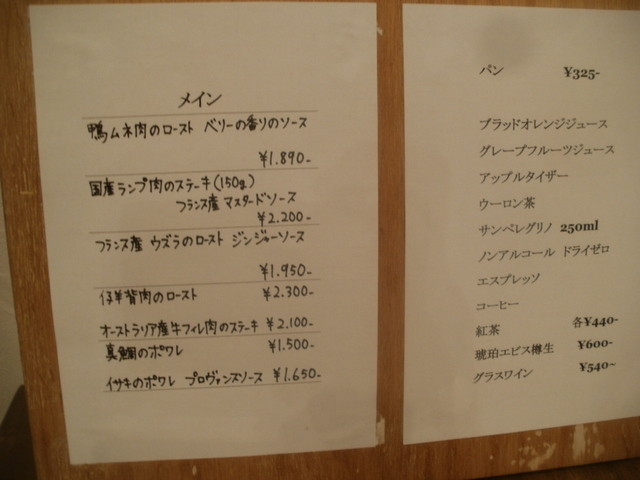 メイン
鴨ムネ肉のロースト ベリーの香りのソース
¥1.890-
国産ランプ肉のステーキ(150g)
フランス産 マスタードソース
¥2.200-
フランス産 ウズラのロースト ジンジャーソース
¥1.950-
仔羊背肉のロースト ¥2.300-
オーストラリア産牛フィレ肉のステーキ ¥2.100-
真鯛のポワレ ¥1.500-
イサキのポワレ プロヴァンスソース ¥1.650-
パン ¥325-
ブラッドオレンジジュース
グレープフルーツジュース
アップルタイザー
ウーロン茶
サンペレグリノ 250ml
ノンアルコール ドライゼロ
エスプレッソ
コーヒー
紅茶 各¥440-
琥珀エビス樽生 ¥600-
グラスワイン ¥540~